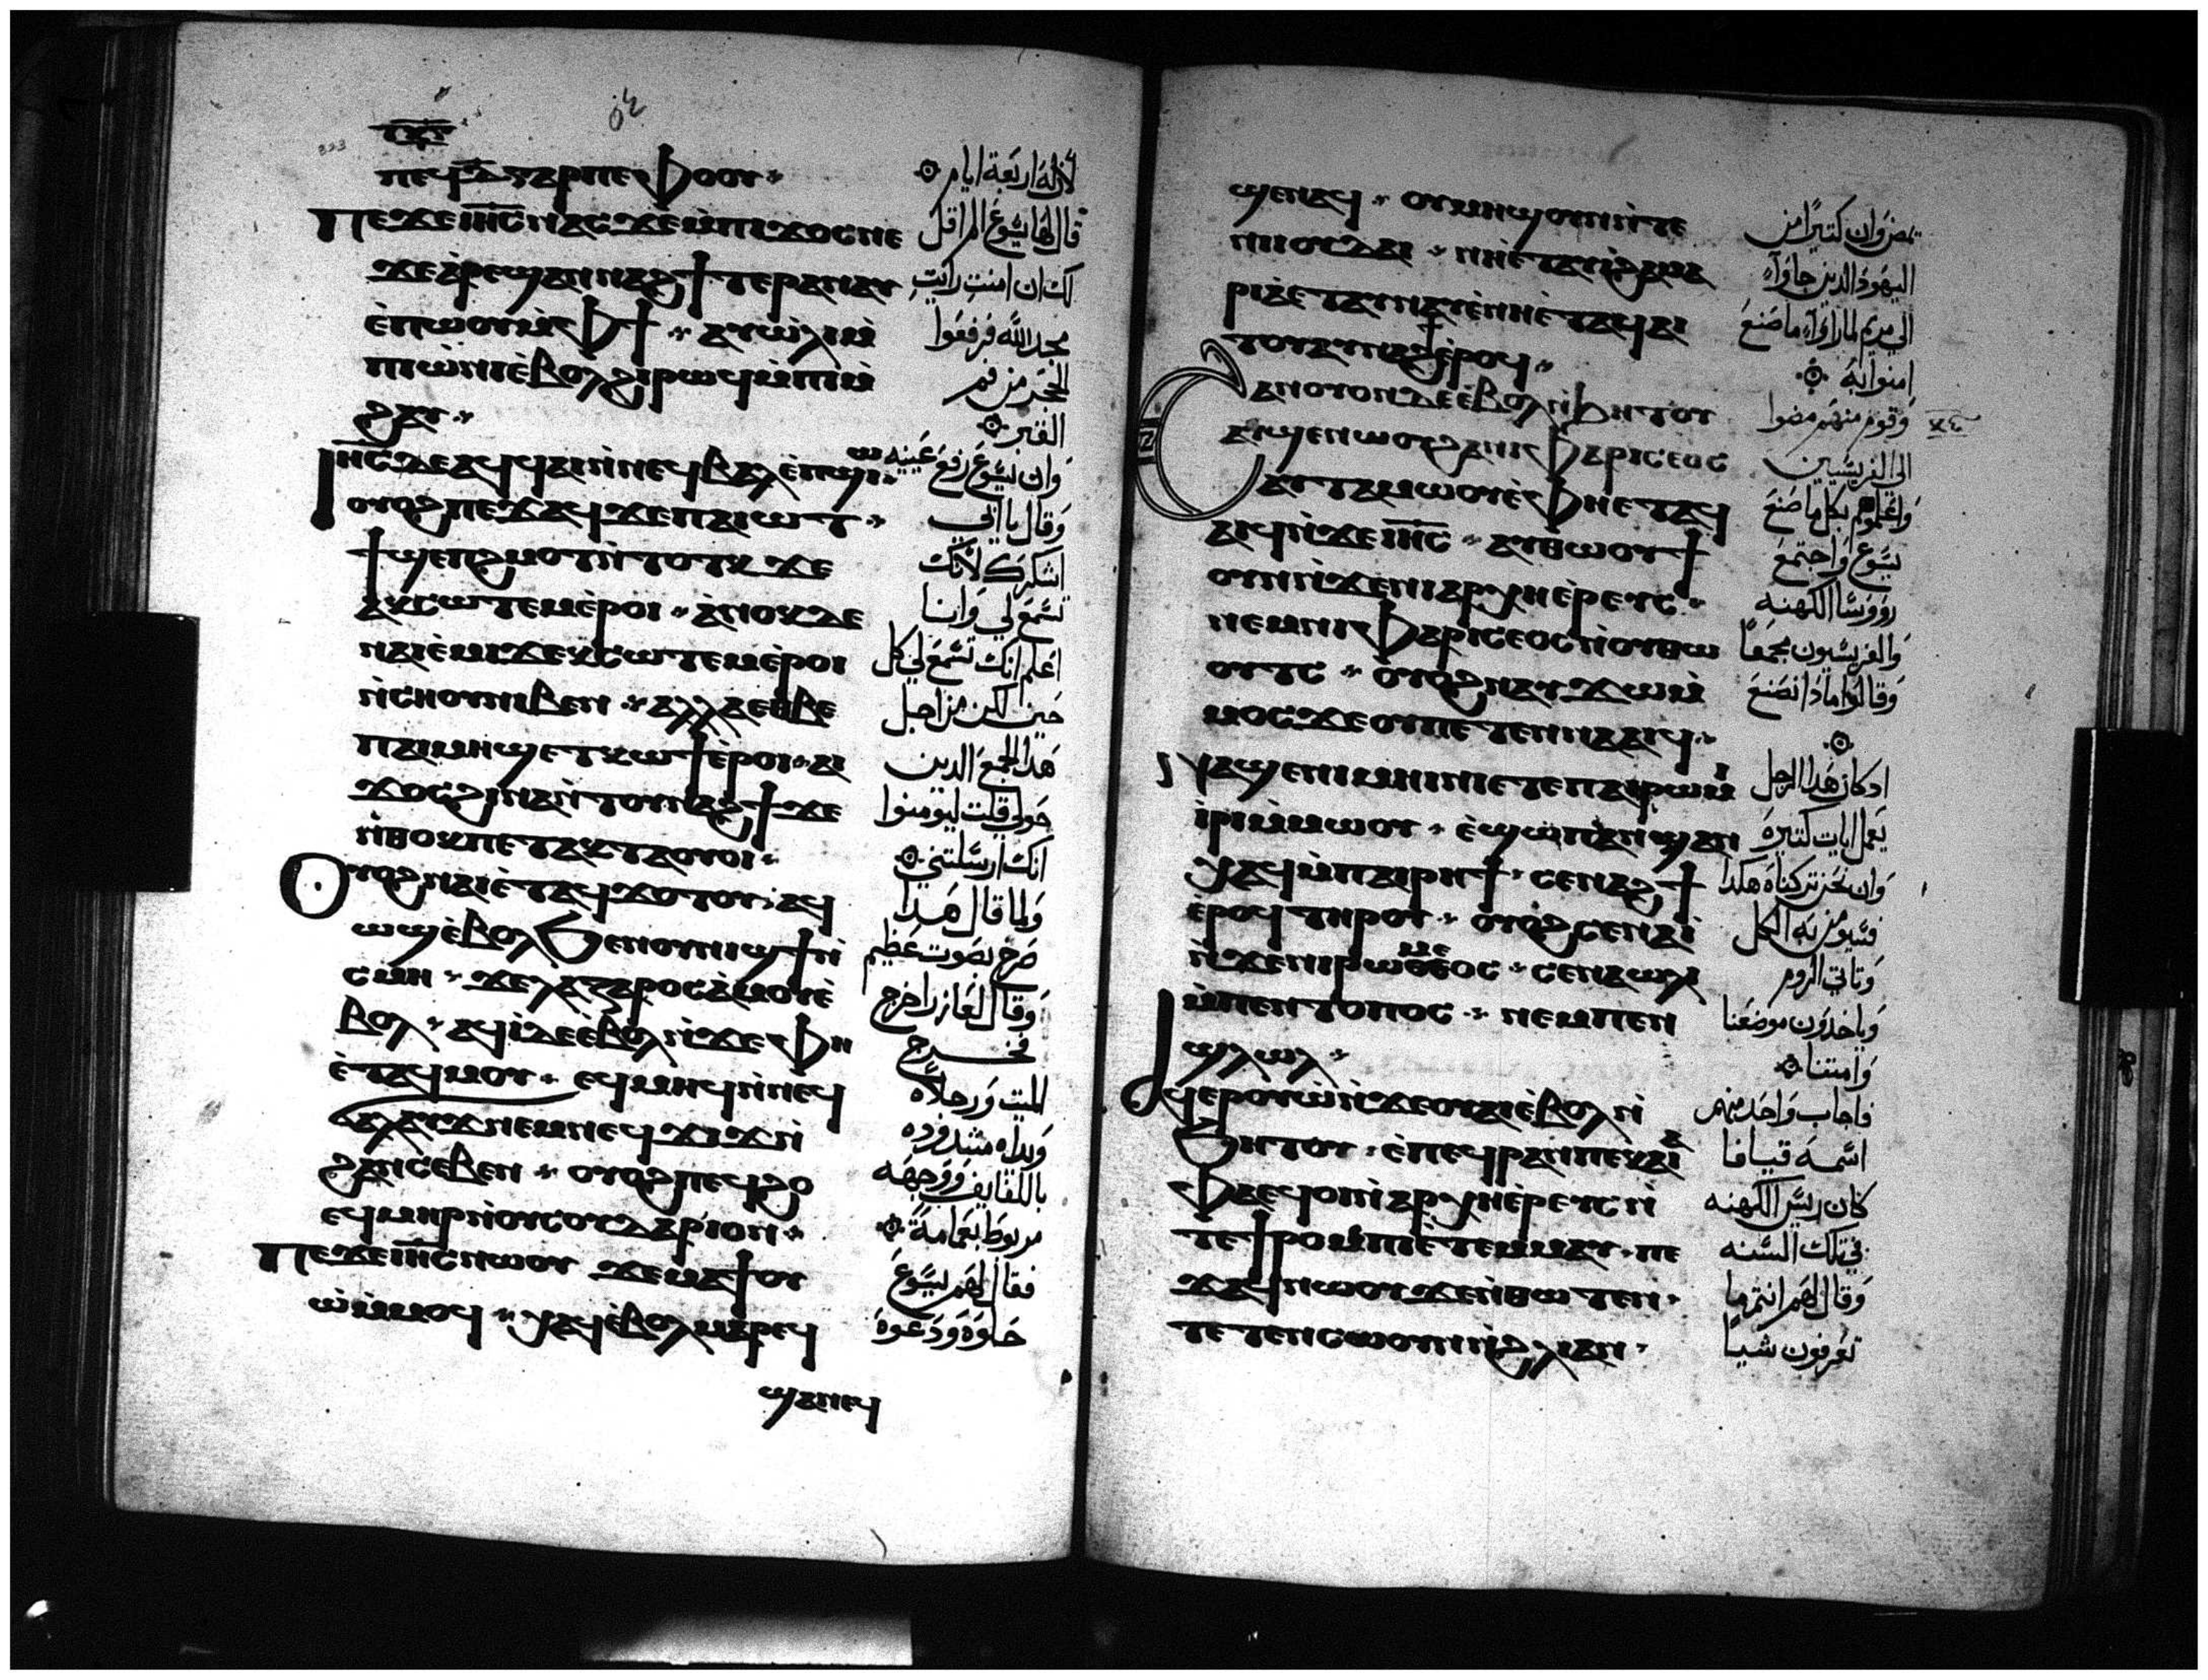 ٥٤
ⲡⲉϥⲇ̅ⲅⲁⲣⲡⲉⲫⲟⲟⲩ
ⲡⲉϫⲉⲓⲏ̅ⲥ̅ⲛⲁⲥϫⲉⲙ̀ⲡⲓϫⲟⲥⲛⲉ
ϫⲉⲁ̀ⲣⲉϣⲁⲛⲛⲁϩϯⲧⲉⲣⲁⲛⲁⲩ
ⲉ̀ⲡⲱⲟⲩⲙ̀ⲫϯ ⲁⲩⲱ̀ⲗⲓⲙ̀
ⲡⲓⲱ̀ⲛⲓⲉ̀ⲃⲟⲗϩⲓⲣⲱϥⲙ̀ⲡⲓⲙ̀
ϩⲁⲩ
ⲓⲏ̅ⲥ̅ⲇⲉⲁϥϥⲁⲓⲛ̀ⲛⲉϥⲃⲁⲗⲉ̀ⲡϣⲱⲓ
ⲟⲩⲟϩⲡⲉϫⲁϥϫⲉⲡⲁⲓⲱⲧ
ϯϣⲉⲡϩⲙⲟⲧⲛ̀ⲧⲟⲧⲕϫⲉ
ⲁⲕⲥⲱⲧⲉⲙⲉ̀ⲣⲟⲓ ⲁ̀ⲛⲟⲕⲇⲉ
ⲛⲁⲓⲉ̀ⲙⲓϫⲉⲕⲥⲱⲧⲉⲙⲉ̀ⲣⲟⲓ
ⲛ̀ⲥⲏⲟⲩⲛⲓⲃⲉⲛ ⲁⲗⲗⲁⲉⲑⲃⲉ
ⲡⲁⲓⲙⲏϣⲉⲧⲕⲱϯⲉ̀ⲣⲟⲓ ⲁⲓ
ϫⲟⲥϩⲓⲛⲁⲛ̀ⲧⲟⲩⲛⲁϩϯϫⲉ
ⲛ̀ⲑⲟⲕⲡⲉⲧⲁⲕⲧⲁⲟⲩⲟⲓ
ⲟⲩⲟϩⲛⲁⲓⲉ̀ⲧⲁϥϫⲟⲧⲟⲩ ⲁϥ
ⲱϣⲉ̀ⲃⲟⲗϧⲉⲛⲟⲩⲛⲓϣϯⲛ̀
ⲥⲙⲏ ϫⲉⲗⲁⲍⲁⲣⲟⲥⲁ̀ⲙⲟⲩⲉ̀
ⲃⲟⲗ ⲁϥⲓ̀ⲇⲉⲉ̀ⲃⲟⲗⲛ̀ϫⲉⲫⲏ
ⲉ̀ⲧⲁϥⲙⲟⲩ ⲉϥⲙⲏⲣⲛ̀ⲛⲉϥ
ϭⲁⲗⲁⲩϫⲛⲉⲙⲛⲉϥϫⲓϫⲛ̀
ϩⲁⲛⲥⲉⲃⲉⲛ ⲟⲩⲟϩⲡⲉϥϩⲟ
ⲉϥⲙⲏⲣⲛ̀ⲟⲩⲥⲟⲩⲇⲁⲣⲓⲟⲛ
ⲡⲉϫⲉⲓⲏ̅ⲥ̅ⲛⲱⲟⲩ ϫⲉⲙⲁϯⲟⲩ
ⲱ̀ⲙ̀ⲙⲟϥ ⲭⲁϥⲉ̀ⲃⲟⲗⲙⲁⲣⲉϥ
ϣⲁⲛⲉϥ
لان له اربعة ايام
قال لها يسوع الم اقل
لك ان امنت رايت
مجد الله فرفعوا
الحجر من فم
القبر
وان يسوع رفع عينيه
وقال يا ابي
اشكرك لانك
تسمع لي وانا
اعلم انك تسمع لي كل
حين لكن من اجل
هذا الجمع الدين
حولي قلت ليومنوا
انك ارسلتني
ولما قال هدا
صرخ بصوت عظيم
وقال لعازر اخرج
فخرج
الميت ورجلاه
ويداه مشدوده
باللفايف ووجهه
مربوط بعمامة
فقال لهم يسوع
حلوه ودعوه
ϣⲉⲛⲁϥ ⲟⲩⲙⲏϣⲟⲩⲛⲛ̀ⲧⲉ
ⲛⲓⲓⲟⲩⲇⲁⲓ ⲛⲏⲉ̀ⲧⲁⲩⲓ̀ϩⲁⲙⲁ
ⲣⲓⲁ̀ⲉⲧⲁⲩⲛⲁⲩⲉ̀ⲛⲏⲉ̀ⲧⲁϥⲁⲓ
ⲧⲟⲩⲁⲩⲛⲁϩϯⲉ̀ⲣⲟϥ
ϩⲁⲛⲟⲩⲟⲛⲇⲉⲉ̀ⲃⲟⲗⲛ̀ϧⲏⲧⲟⲩ
ⲁⲩϣⲉⲛⲱⲟⲩϩⲁⲛⲓⲫⲁⲣⲓⲥⲉⲟⲥ
ⲁⲩⲧⲁⲙⲱⲟⲩⲉ̀ⲫⲏⲉⲧⲁϥ
ⲁⲓϥⲛ̀ϫⲉⲓⲏ̅ⲥ̅ ⲁⲩⲑⲱⲟⲩϯ
ⲟⲩⲛⲛ̀ϫⲉⲛⲓⲁⲣⲭⲏⲉ̀ⲣⲉⲩⲥ
ⲛⲉⲙⲛⲓⲫⲁⲣⲓⲥⲉⲟⲥⲛ̀ⲟⲩⲑⲱ
ⲟⲩⲧⲥ ⲟⲩⲟϩⲛⲁⲩϫⲱⲙ̀
ⲙⲟⲥϫⲉⲟⲩⲡⲉⲧⲉⲛⲛⲁⲁⲓϥ
ⲓⲥϩⲁⲛⲙⲏⲓⲛⲓⲉⲧⲉⲡⲁⲓⲣⲱⲙⲓ
ⲓ̀ⲣⲓⲙ̀ⲙⲱⲟⲩ ⲉ̀ϣⲱⲡⲁⲛϣⲁⲛ
ⲭⲁϥⲙ̀ⲡⲁⲓⲣⲏϯ ⲥⲉⲛⲁϩϯ
ⲉ̀ⲣⲟϥⲧⲏⲣⲟⲩ ⲟⲩⲟϩⲥⲉⲛⲁⲓ̀
ⲛ̀ϫⲉⲛⲓⲣⲱⲙⲉⲟⲥ ⲥⲉⲛⲁⲱⲗⲓ
ⲙ̀ⲡⲉⲛⲧⲟⲡⲟⲥ ⲛⲉⲙⲡⲉⲛ
ϣⲗⲱⲗ
ⲁϥⲉⲣⲟⲩⲱ̀ⲛ̀ϫⲉⲟⲩⲁⲓⲉ̀ⲃⲟⲗⲛ̀
ϧⲏⲧⲟⲩ ⲉ̀ⲡⲉϥⲣⲁⲛⲡⲉⲕⲁⲓⲁ̀
ⲫⲁⲉϥⲟⲓⲛ̀ⲁⲣⲭⲏⲉ̀ⲣⲉⲩⲥⲛ̀
ⲧⲉϯⲣⲟⲙⲡⲓⲉ̀ⲧⲉⲙⲙⲁⲩ ⲡⲉ
ϫⲁϥⲛⲱⲟⲩϫⲉⲛ̀ⲑⲱⲧⲉⲛ
ⲧⲉⲧⲉⲛⲥⲱⲟⲩⲛⲛ̀ϩⲗⲓⲁⲛ
يمضي وان كتيرا من
اليهود الدين جاوا
الي مريم لما راوا ما صنع
امنوا به
وقوم منهم مضوا
الى الفريسيين
واعلموهم بكل ما صنع
يسوع واجتمع
رووسا الكهنه
والفريسيون مجمعا
وقالوا مادا نصنع
اد كان هدا الرجل
يعمل ايات كتيره
وان نحن تركناه هكدا
فسيومن به الكل
وتاتي الروم
وياخدون موضعنا
وامتنا
فاجاب واحد منهم
اسمه قيافا
كان ريس الكهنه
في تلك السنه
وقال لهم انتم ما
تعرفون شيا